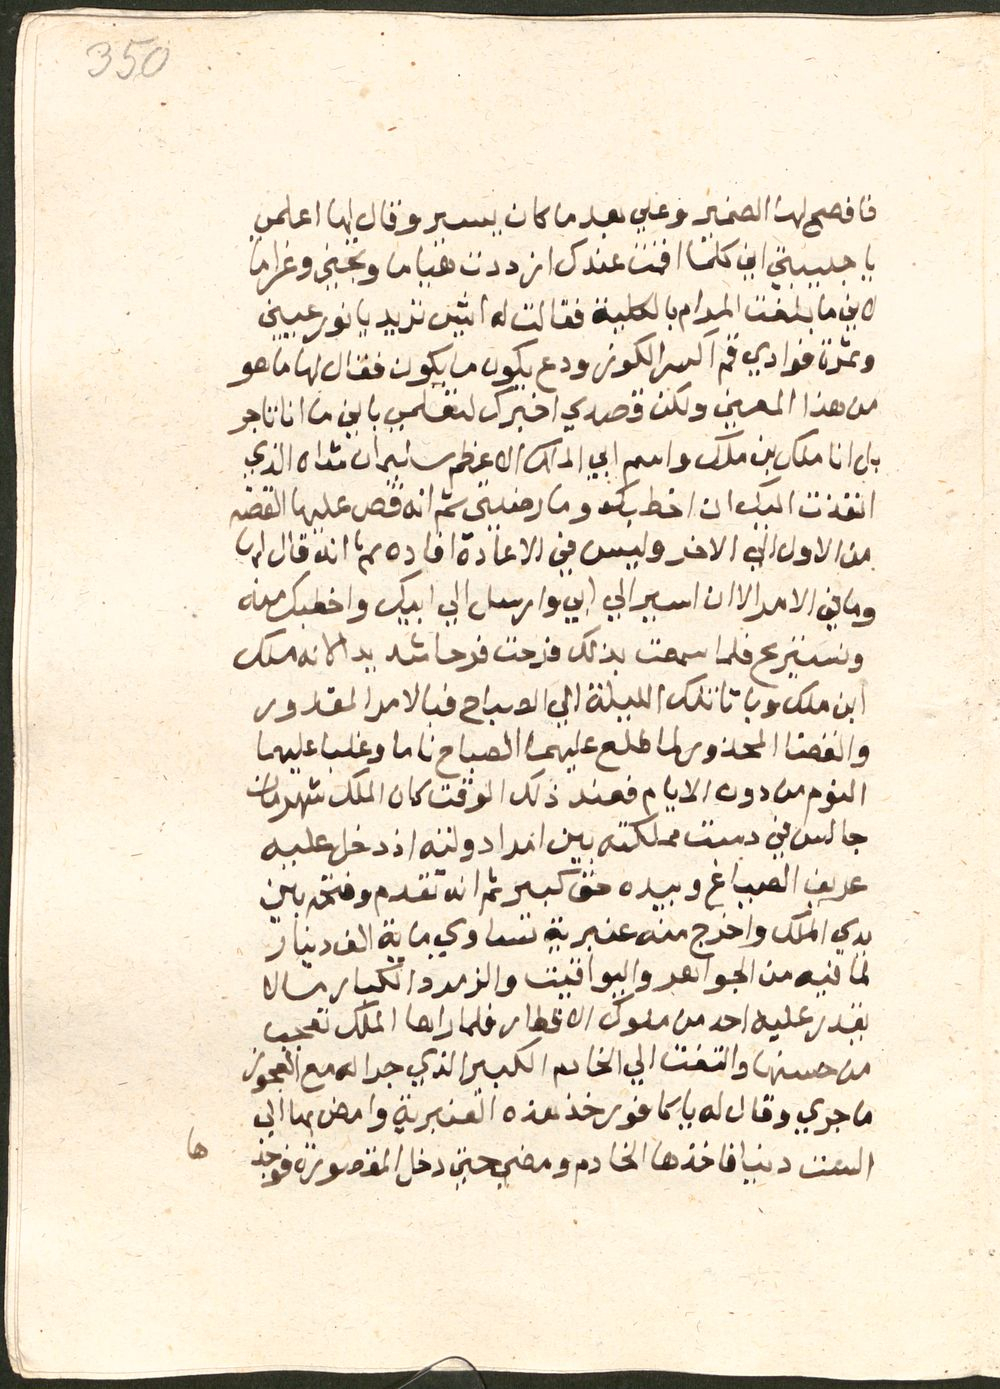 350
فافصح لها الضمير وغلي بعد ما كان يسير وقال لها اعلمي
يا حبيبتي اني كلما اقمت عندك ازددت هياما وتحنني وغراما
لاني ما بلغت المرام بالكلية فقالت له ايش تريد يا نور عيني
وثمرة فوادي قم اكسر الكوز ودع يكون ما يكون فقال لها ما هو
من هذا المعني ولكن قصدي اخبرك لتعلمي باني ما انا تاجر
بل انا ملك بن ملك واسم ابي الملك الاعظم سليمان شاه الذي
انفذت اليك ان اخطبك وما رضيتي ثم انه قص عليها القصه
من الاول الي الاخر وليس في الاعادة افاده ثم انه قال لها
وما بقي الامر الا ان اسير الي ابي وارسل الي ابيك واخطبك منه
ونستريح فلما سمعت بذلك فرحت فرحا شديدا لانه ملك
ابن ملك وباتا تلك الليلة الي الصباح فبالامر المقدور
والقضا المحذور لما طلع عليهما الصباح ناما وغلب عليهما
النوم من دون الايام فعند ذلك الوقت كان الملك شهرمان
جالس في دست مملكته بين امرا دولته اذ دخل عليه
عريف الصياغ وبيده حق كبير ثم انه تقدم وفتحه بين
يدي الملك واخرج منه عنبرية تساوي ماية الف دينار
لما فيه من الجواهر واليواقيت والزمرد الكبار مما لا
يقدر عليه احد من ملوك الاقطار فلما راها الملك تعجب
من حسنها والتفت الي الخادم الكبير الذي جرا له مع العجوز
ما جري وقال له يا كافور خذ هذه العنبرية وامض بها الي
الست دنيا فاخذها الخادم ومضي حتي دخل المقصورة فوجد
ها